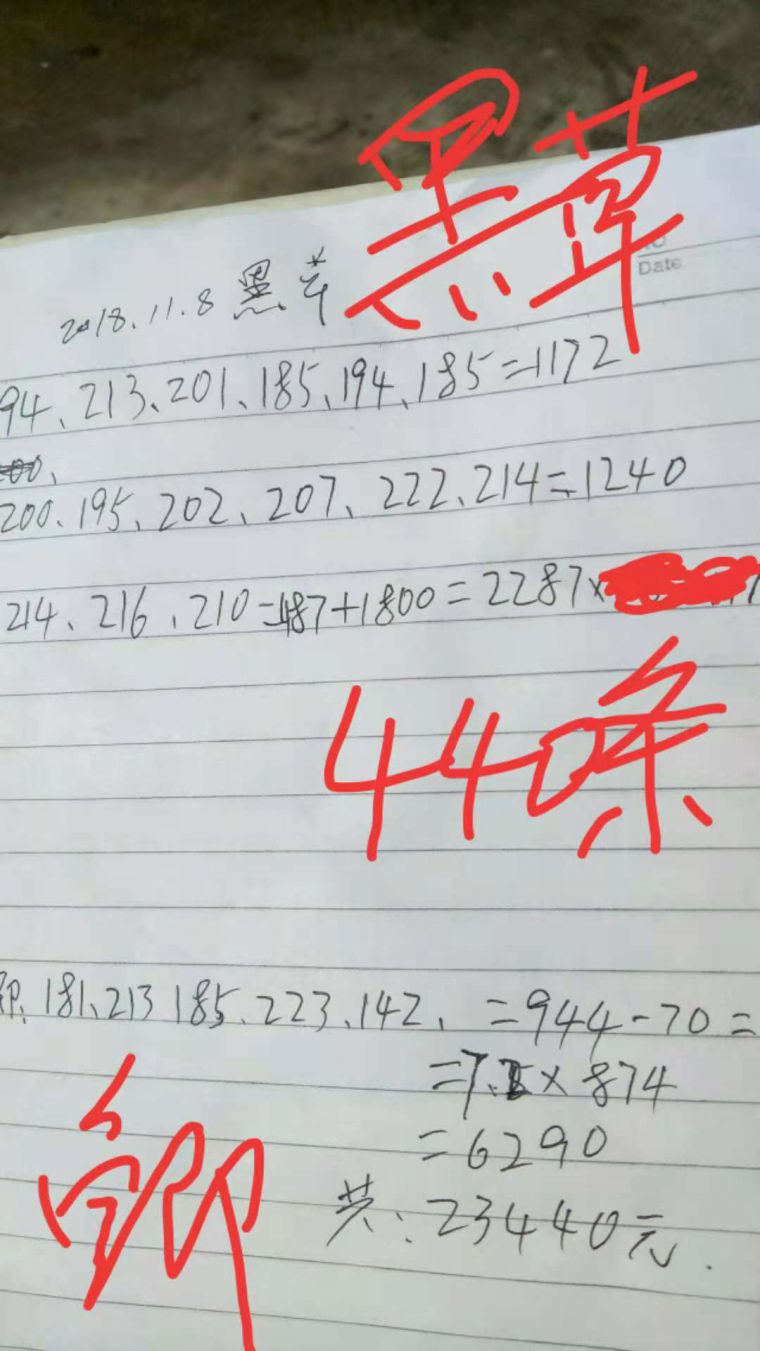 黑草
Date
2018.11.8 黑草
94、213、201、185、194、185=1172
200、195、202、207、222、214=1240
214、216、210=487+1800=2287×
440条
181、213 185、223、142、=944-70=
×874
=6290
共:23440元.